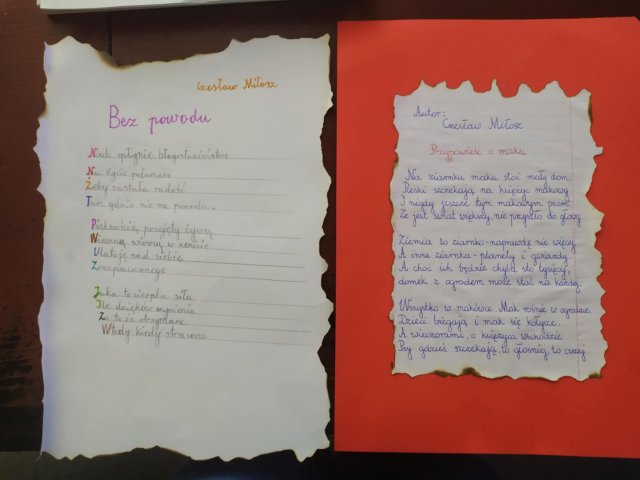 Czesław Miłosz
Bez powodu
Niech spłynie błogosławieństwo
Na życie połamane
Żeby została radość
Tam gdzie nie ma powodu.
Pięknością przejęty żywą
Wieczną wiosną w
Ulatuje nad siebie
Zrozpaczonego
Jaka to ciepła siła
Ile dzięków wypienia
Za to że otrzymane
Wtedy kiedy stracone
Autor:
Czesław Miłosz
Przypowieść o maku
Na ziarnku maku stoi mały dom,
Pieski szczekają na księżyc makowy
I nigdy jeszcze tym makowym psom,
Że jest świat większy, nie przyszło do głowy.
Ziemia to ziarnko - naprawdę nie więcej,
A inne ziarnka - planety i gwiazdy.
A choć ich będzie chyba sto tysięcy,
domek z ogrodem może stać na każdej.
Wszystko w makówce. Mak rośnie w ogrodzie,
Dzieci biegają i mak się kołysze.
A wieczorami, o księżyca wschodzie
Psy gdzieś szczekają, to głośniej, to ciszej.